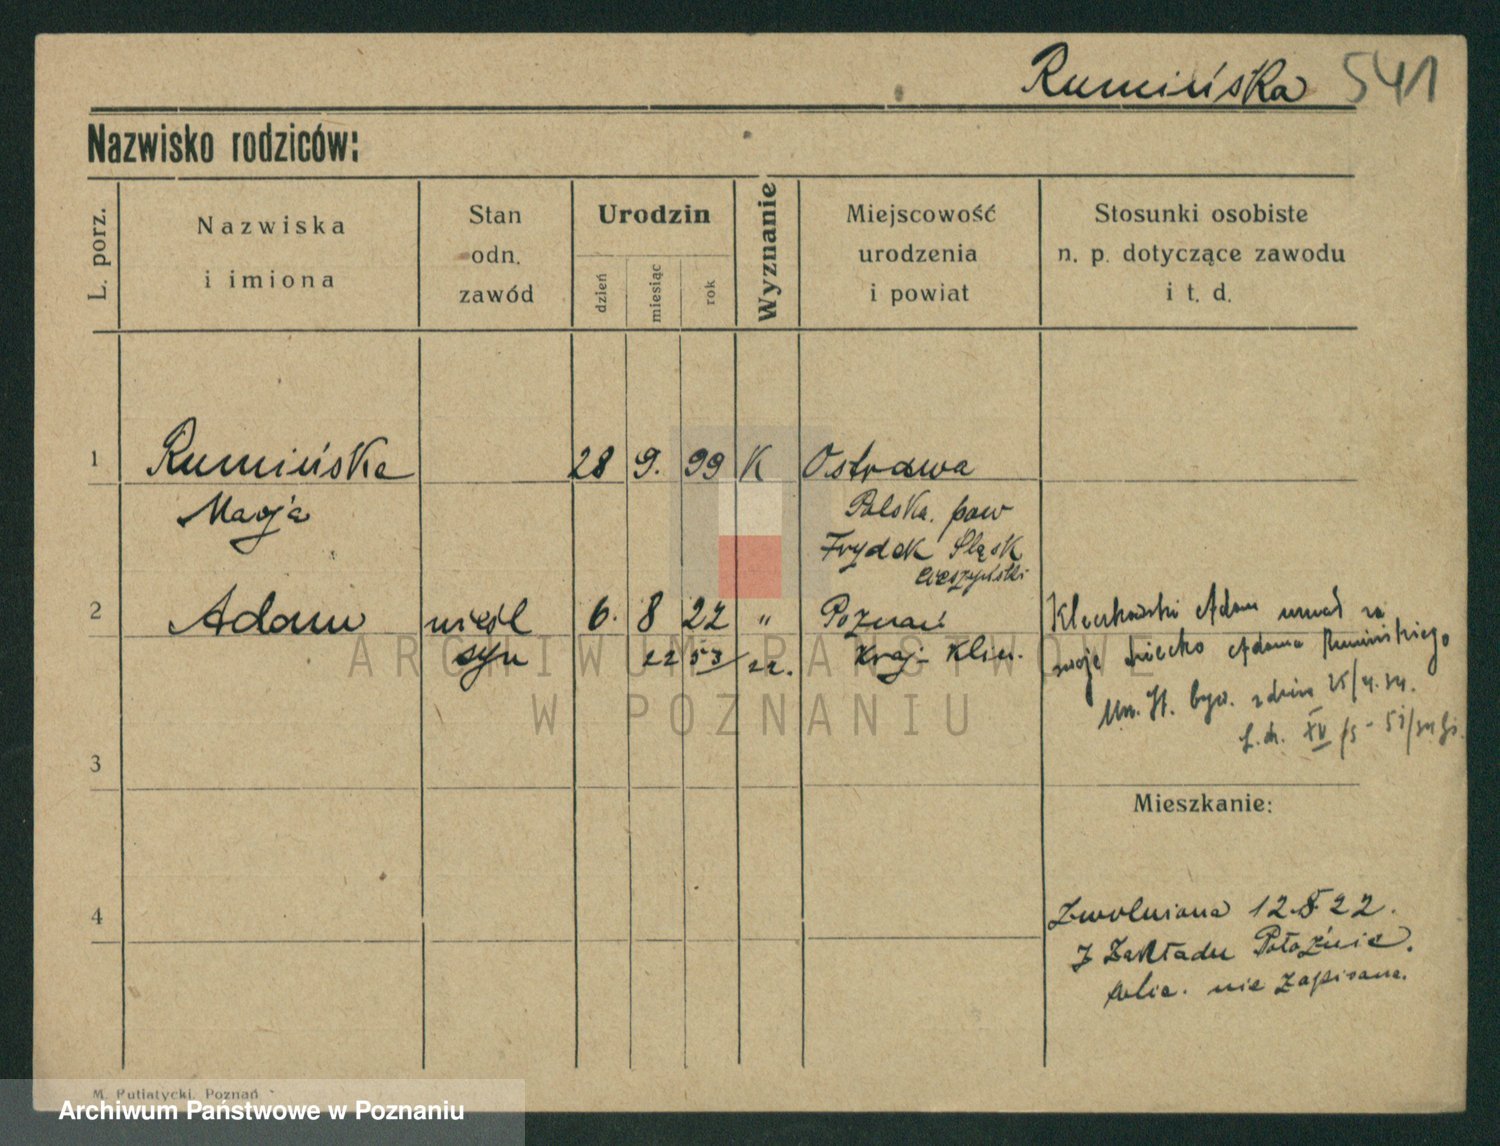 Rumińska 541
Nazwisko rodziców:
L. porz.
Nazwiska
i imiona
Stan
odn.
zawód
Urodzin
dzień
miesiąc
rok
Wyznanie
Miejscowość
urodzenia
i powiat
Stosunki osobiste
n. p. dotyczące zawodu
i t. d.
1 Rumińska 28 9. 99 K Ostrawa
Marja Polska. pow
Frydek Śląsk
Cieszyński
2 Adam nieśl 6. 8 22 " Poznań
syn 22 53/22. Kraj-Klin.
Adam uznał za
swoje dziecko Adama Rumińskiego
3
Mieszkanie:
4
Zwolniona 12.8.22.
z Zakładu Położnic.
nie zapisana.
M. Putiatycki. Poznań
ARCHIWUM PAŃSTWOWE
W POZNANIU
Archiwum Państwowe w Poznaniu